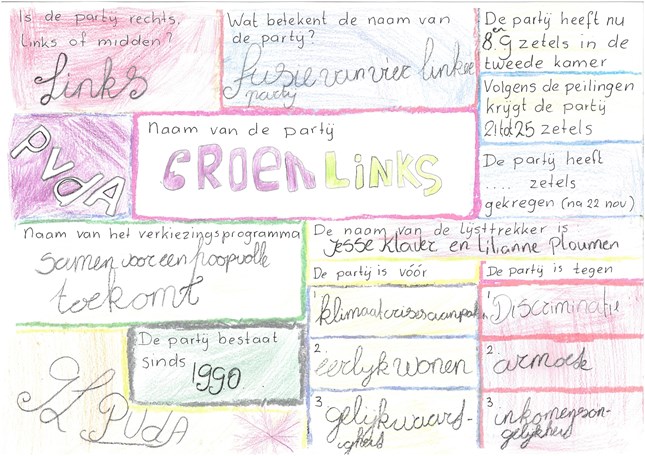 Is de partij rechts,
links of midden?
Links
Wat betekent de naam van
de party?
fusie van vier linkse
party
De partij heeft nu
8 en 9 zetels in de
tweede kamer
Volgens de peilingen
krijgt de partij
21 tot 25 zetels
De partij heeft
.... zetels
gekregen (na 22 nov)
PvdA
Naam van de partij
GROEN LINKS
Naam van het verkiezingsprogramma
samen voor een hoopvolle
toekomt
De naam van de lijsttrekker is :
Jesse Klaver en Lilianne Ploumen
De partij is vóór
1 klimaatcrisesaanpakken
2. eerlijk wonen
3 gelijkwaars-
igheid
De partij is tegen
1. Discriminatie
2 armoede
3 inkomenson-
gelijkheid
De partij bestaat
sinds
1990
GL PvdA